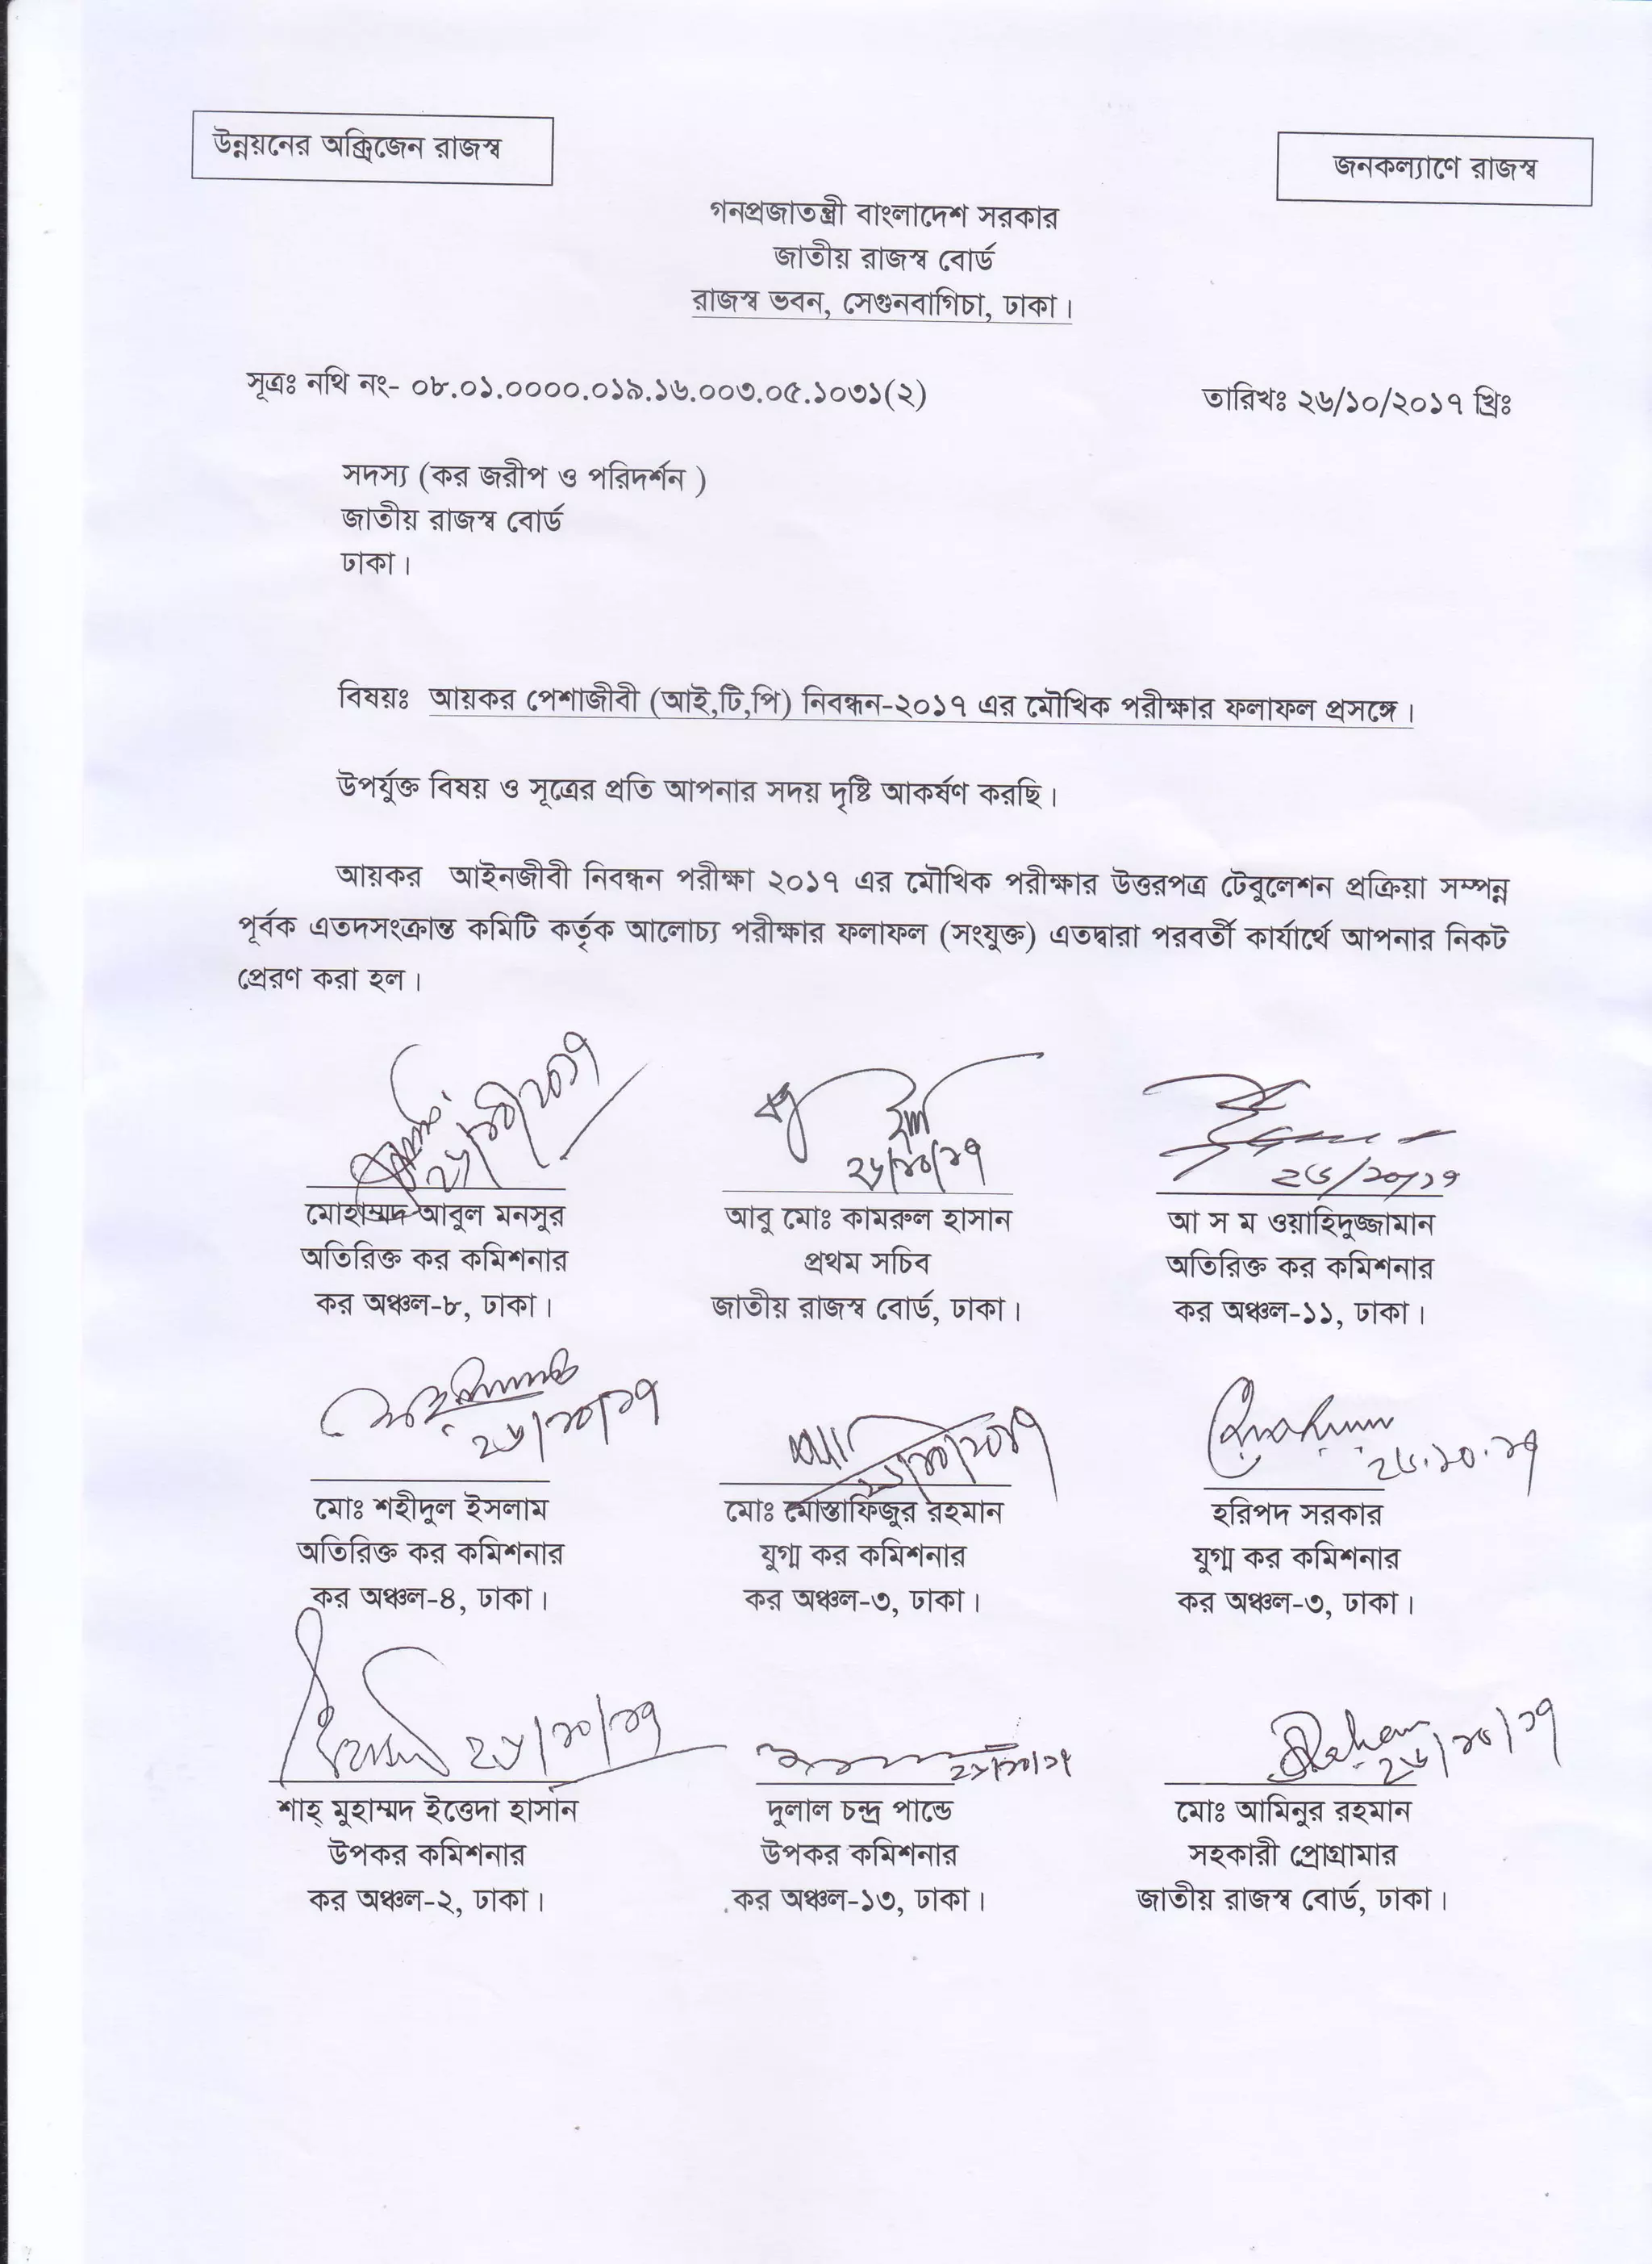 উন্নয়নের অক্সিজেন রাজস্ব
জনকল্যাণে রাজস্ব
গনপ্রজাতন্ত্রী বাংলাদেশ সরকার
জাতীয় রাজস্ব বোর্ড
রাজস্ব ভবন, সেগুনবাগিচা, ঢাকা।
সূত্রঃ নথি নং- ০৮.০১.০০০০.০১৯.১৬.০০৩.০৫.১০৩১(২) তারিখঃ ২৬/১০/২০১৭ খ্রিঃ
সদস্য (কর জরীপ ও পরিদর্শন )
জাতীয় রাজস্ব বোর্ড
ঢাকা।
বিষয়ঃ আয়কর পেশাজীবী (আই,টি,পি) নিবন্ধন-২০১৭ এর মৌখিক পরীক্ষার ফলাফল প্রসঙ্গে।
উপর্যুক্ত বিষয় ও সূত্রের প্রতি আপনার সদয় দৃষ্টি আকর্ষণ করছি।
আয়কর আইনজীবী নিবন্ধন পরীক্ষা ২০১৭ এর মৌখিক পরীক্ষার উত্তরপত্র টেবুলেশন প্রক্রিয়া সম্পন্ন
পূর্বক এতদসংক্রান্ত কমিটি কর্তৃক আলোচ্য পরীক্ষার ফলাফল (সংযুক্ত) এতদ্বারা পরবর্তী কার্যার্থে আপনার নিকট
প্রেরণ করা হল।
২৬/১০/২০১৭ ২৬/১০/১৭ ২৬/১০/১৭
মোহাম্মদ আবুল মনসুর আবু মোঃ কামরুল হাসান আ স ম ওয়াহিদুজ্জামান
অতিরিক্ত কর কমিশনার প্রথম সচিব অতিরিক্ত কর কমিশনার
কর অঞ্চল-৮, ঢাকা। জাতীয় রাজস্ব বোর্ড, ঢাকা। কর অঞ্চল-১১, ঢাকা।
২৬/১০/১৭ ২৬/১০/২০১৭ ২৬.১০.১৭
মোঃ শহীদুল ইসলাম মোঃ মোস্তাফিজুর রহমান হরিপদ সরকার
অতিরিক্ত কর কমিশনার যুগ্ম কর কমিশনার যুগ্ম কর কমিশনার
কর অঞ্চল-৪, ঢাকা। কর অঞ্চল-৩, ঢাকা। কর অঞ্চল-৩, ঢাকা।
২৬/১০/১৭ ২৬/১০/১৭ ২৬/১০/১৭
শাহ্ মুহাম্মদ ইত্তেদা হাসান দুলাল চন্দ্র পান্ডে মোঃ আমিনুর রহমান
উপকর কমিশনার উপকর কমিশনার সহকারী প্রোগ্রামার
কর অঞ্চল-২, ঢাকা। কর অঞ্চল-১৩, ঢাকা। জাতীয় রাজস্ব বোর্ড, ঢাকা।